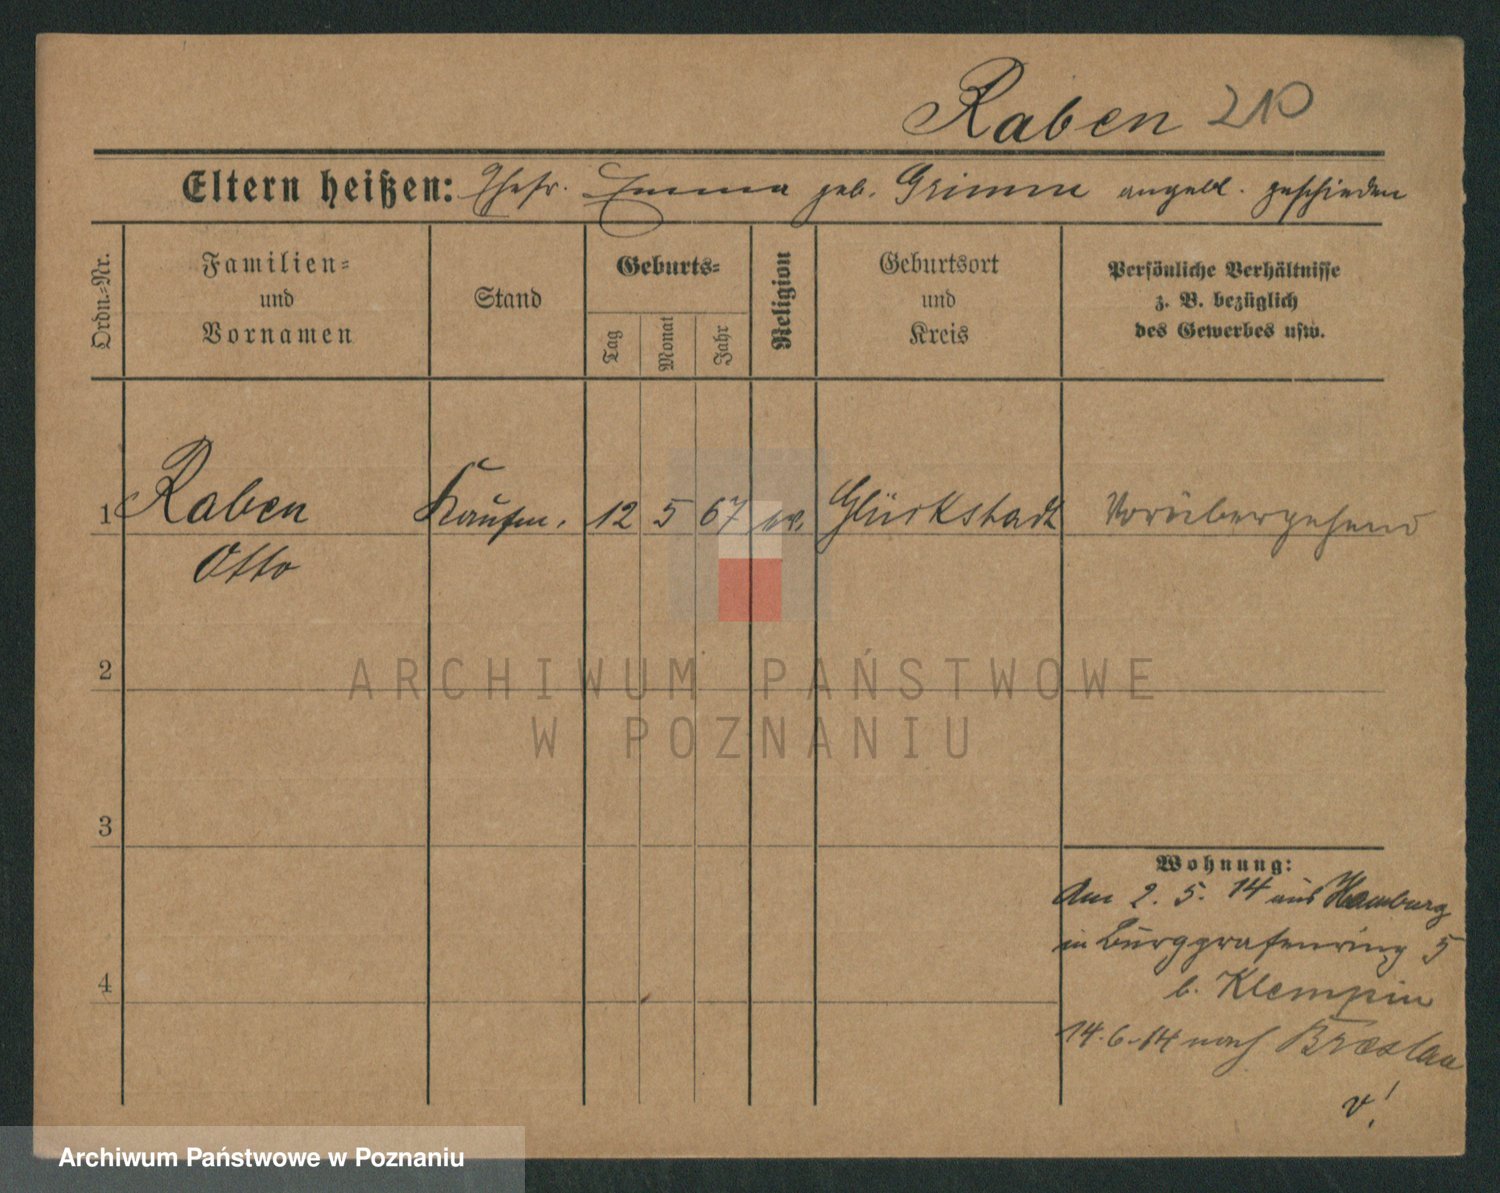 Raben 210
Eltern heißen: Ehefr. Emma geb. Grimm angebl. geschieden
Ordn.-Nr.
Familien-
und
Vornamen
Stand
Geburts-
Tag
Monat
Jahr
Religion
Geburtsort
und
Kreis
Persönliche Verhältnisse
z. B. bezüglich
des Gewerbes usw.
1 Raben Kaufm. 12 5 67 ev. Glückstadt Vorübergehend
Otto
2
3
4
Wohnung:
Am 2. 5. 14 aus Hamburg
in Burggrafenring 5
b. Klempin
14.6.14 nach Breslau
v!
ARCHIWUM PAŃSTWOWE
W POZNANIU
Archiwum Państwowe w Poznaniu